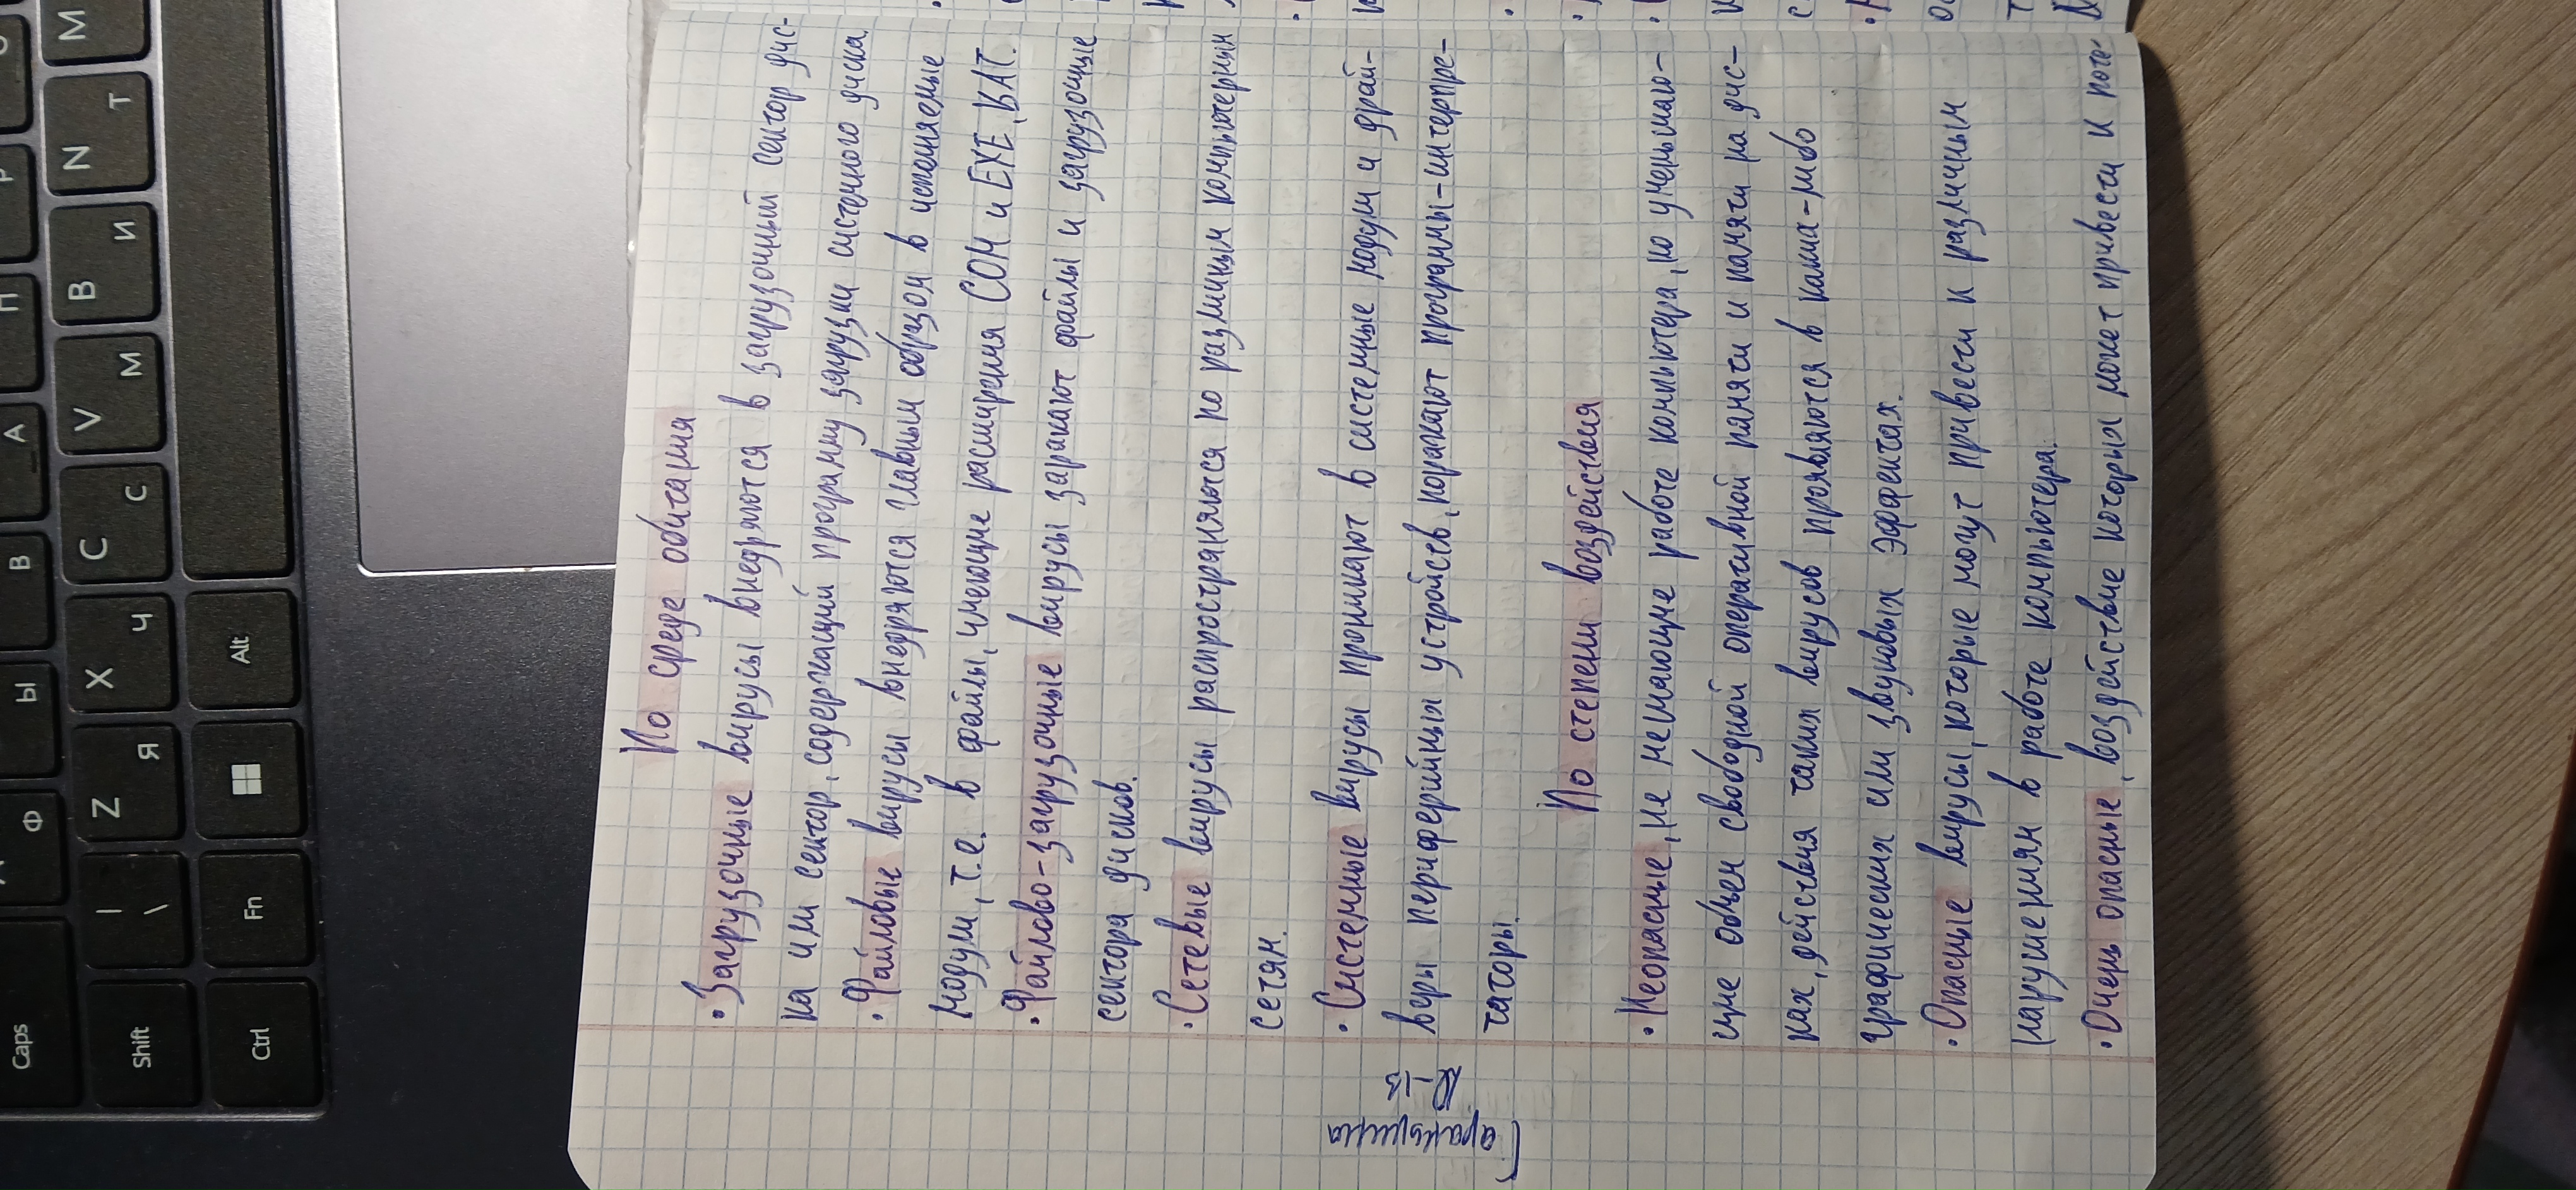 По среде обитания
• Загрузочные вирусы внедряются в загрузочный сектор дис-
ка или сектор, содержащий программу загрузки системного диска.
• Файловые вирусы внедряются главным образом в исполняемые
модули, т.е. в файлы, имеющие расширения COM и EXE, BAT.
• Файлово-загрузочные вирусы заражают файлы и загрузочные
сектора дисков.
• Сетевые вирусы распространяются по различным компьютерным
сетям.
• Системные вирусы проникают в системные модули и драй-
веры периферийных устройств, поражают программы-интерпре-
таторы.
По степени воздействия
• Неопасные, не мешающие работе компьютера, но уменьшаю-
щие объем свободной оперативной памяти и памяти на дис-
ках, действия таких вирусов проявляются в каких-либо
графических или звуковых эффектах.
• Опасные вирусы, которые могут привести к различным
нарушениям в работе компьютера.
• Очень опасные, воздействие которых может привести к поте-
Caps
Shift
Ctrl
Fn
Alt
\ |
Z Я
X Ч
C С
V М
B И
N Т
M
Ф
Ы
В
А
П
Р
О